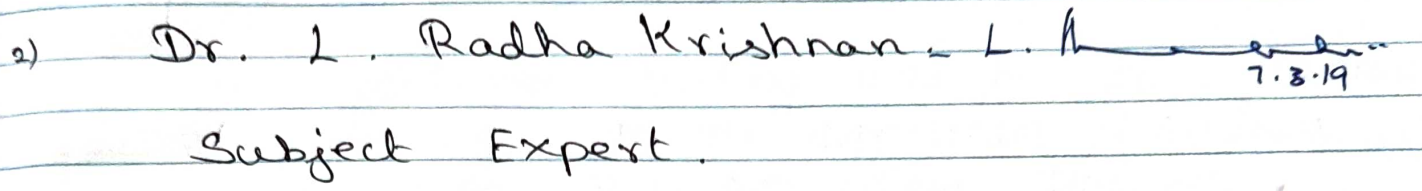 2) Dr. L. Radha Krishnan - L.
7.3.19
Subject Expert.